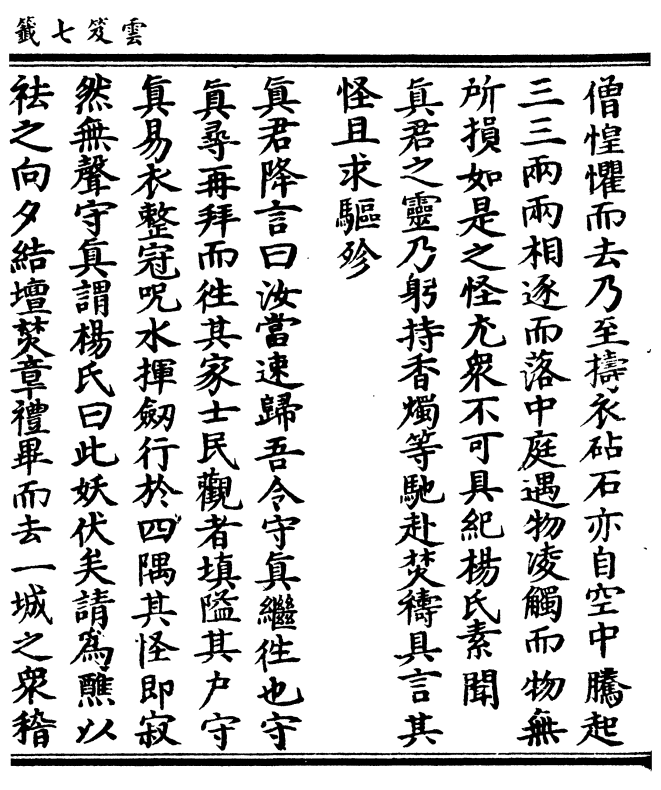 雲笈七籤
僧惶懼而去乃至擣衣砧石亦自空中騰起
三三兩兩相逐而落中庭遇物凌觸而物無
所損如是之怪尤衆不可具紀楊氏素聞
眞君之靈乃躬持香燭等馳赴焚禱具言其
怪且求驅殄
眞君降言曰汝當速歸吾令守眞繼徃也守
眞尋再拜而徃其家士民觀者塡隘其户守
眞易衣整冠呪水揮劒行於四隅其怪即寂
然無聲守眞謂楊氏曰此妖伏矣請爲醮以
祛之向夕結壇焚章禮畢而去一城之衆稽